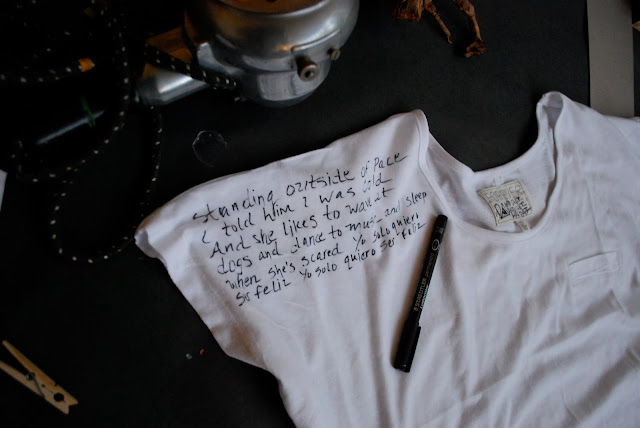 standing outside of Pace
I told him I was
And she likes to
dogs and dance to music and sleep
when she's scared Yo solo quiero
Ser feliz Yo solo quiero ser feliz
STAEDTLER